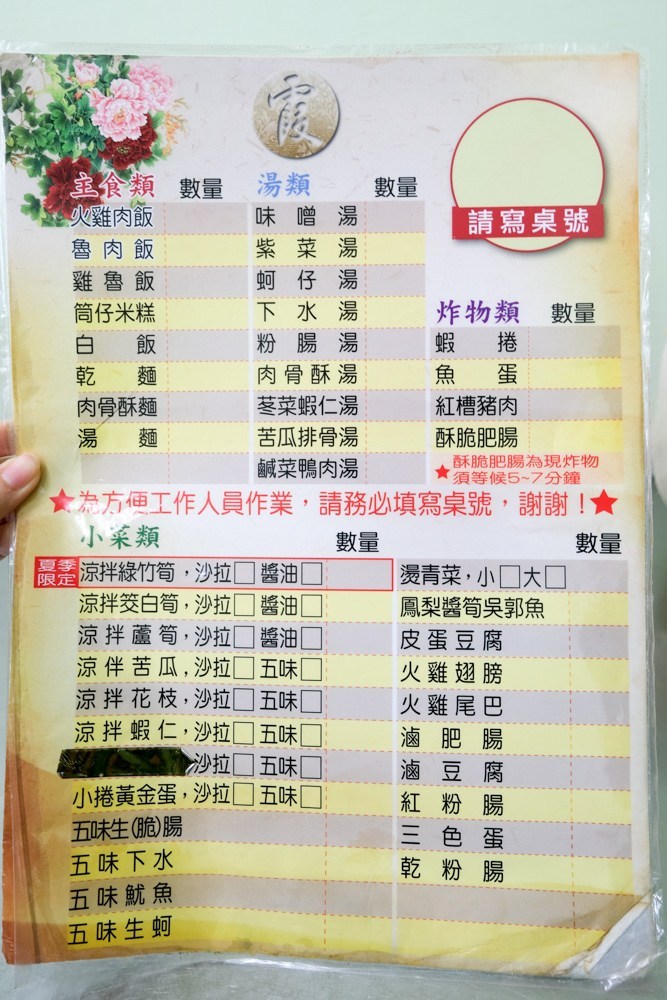 霞
請寫桌號
主食類 數量
火雞肉飯
魯肉飯
雞魯飯
筒仔米糕
白飯
乾麵
肉骨酥麵
湯麵
湯類 數量
味噌湯
紫菜湯
蚵仔湯
下水湯
粉腸湯
肉骨酥湯
荖菜蝦仁湯
苦瓜排骨湯
鹹菜鴨肉湯
炸物類 數量
蝦捲
魚蛋
紅槽豬肉
酥脆肥腸
★酥脆肥腸為現炸物
須等候5~7分鐘
★為方便工作人員作業，請務必填寫桌號，謝謝！★
小菜類 數量
夏季限定 涼拌綠竹筍，沙拉□醬油□
涼拌筊白筍，沙拉□醬油□
涼拌蘆筍，沙拉□醬油□
涼伴苦瓜，沙拉□五味□
涼拌花枝，沙拉□五味□
涼拌蝦仁，沙拉□五味□
沙拉□五味□
小捲黃金蛋，沙拉□五味□
五味生(脆)腸
五味下水
五味魷魚
五味生蚵
數量
燙青菜，小□大□
鳳梨醬筍吳郭魚
皮蛋豆腐
火雞翅膀
火雞尾巴
滷肥腸
滷豆腐
紅粉腸
三色蛋
乾粉腸